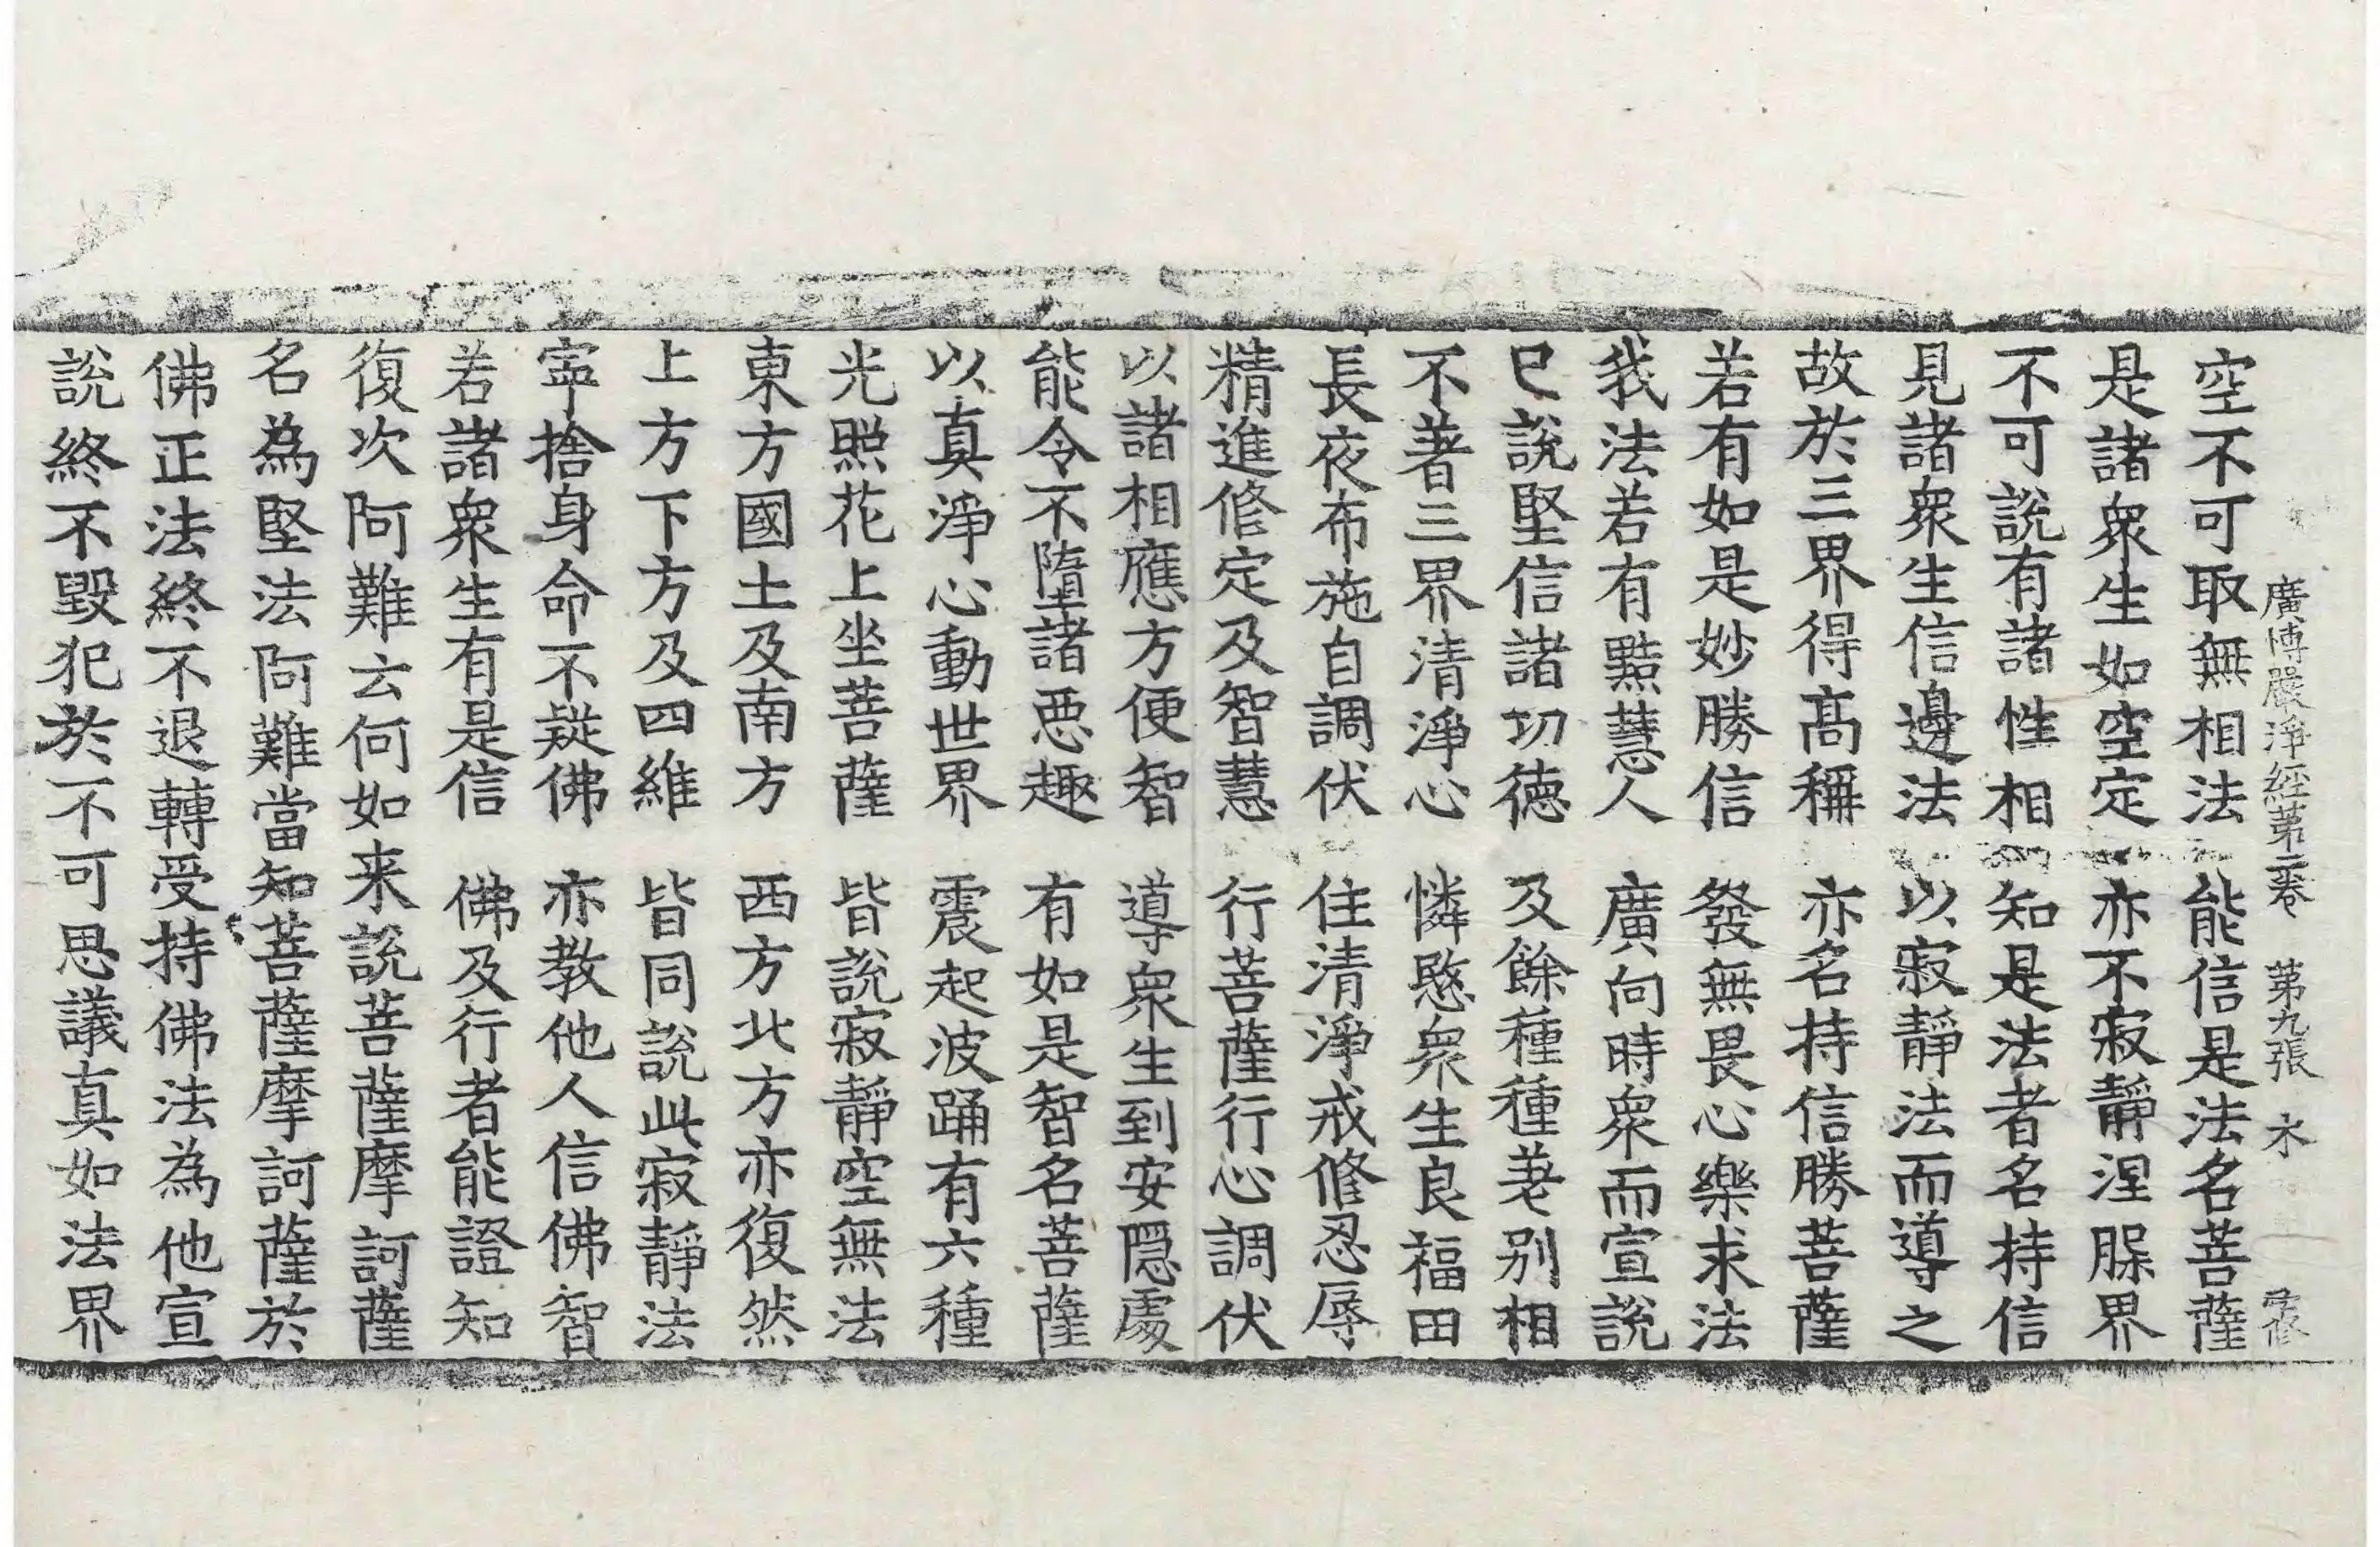 廣博嚴淨經第二卷　第九張　木
空不可取無相法　能信是法名菩薩
是諸衆生如空定　亦不寂靜涅脲界
不可説有諸性相　知是法者名持信
見諸衆生信邊法　以寂靜法而導之
故於三界得髙稱　亦名持信勝菩薩
若有如是妙勝信　發無畏心樂求法
我法若有黠慧人　廣向時衆而宣說
已說堅信諸功德　及餘種種差别相
不著三界清淨心　憐愍衆生良福田
長夜布施自調伏　住清淨戒修忍辱
精進修定及智慧　行菩薩行心調伏
以諸相應方便智　導衆生到安隱處
能令不墮諸惡趣　有如是智名菩薩
以真淨心動世界　震起波踊有六種
光照花上坐菩薩　皆說寂靜空無法
東方國土及南方　西方北方亦復然
上方下方及四維　皆同說此寂靜法
寧捨身命不疑佛　亦教他人信佛智
若諸衆生有是信　佛及行者能證知
復次阿難云何如来說菩薩摩訶薩
名為堅法阿難當知菩薩摩訶薩於
佛正法終不退轉受持佛法為他宣
說終不毀犯於不可思議真如法界